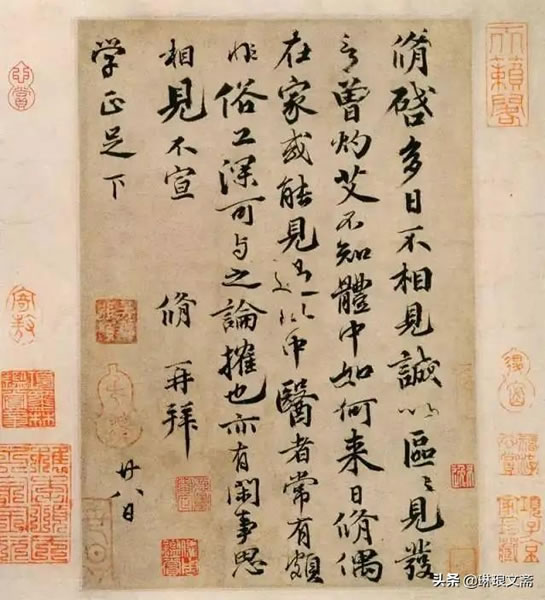 脩啓多日不相見誠以區〻見發
言曾灼艾不知體中如何來日脩偶
在家或能見過此中醫者常有頗
非俗工深可与之論搉也亦有閑事思
相見不宣 脩再拜
学正足下 廿八日
天籟閣
头条 @琳琅文斋